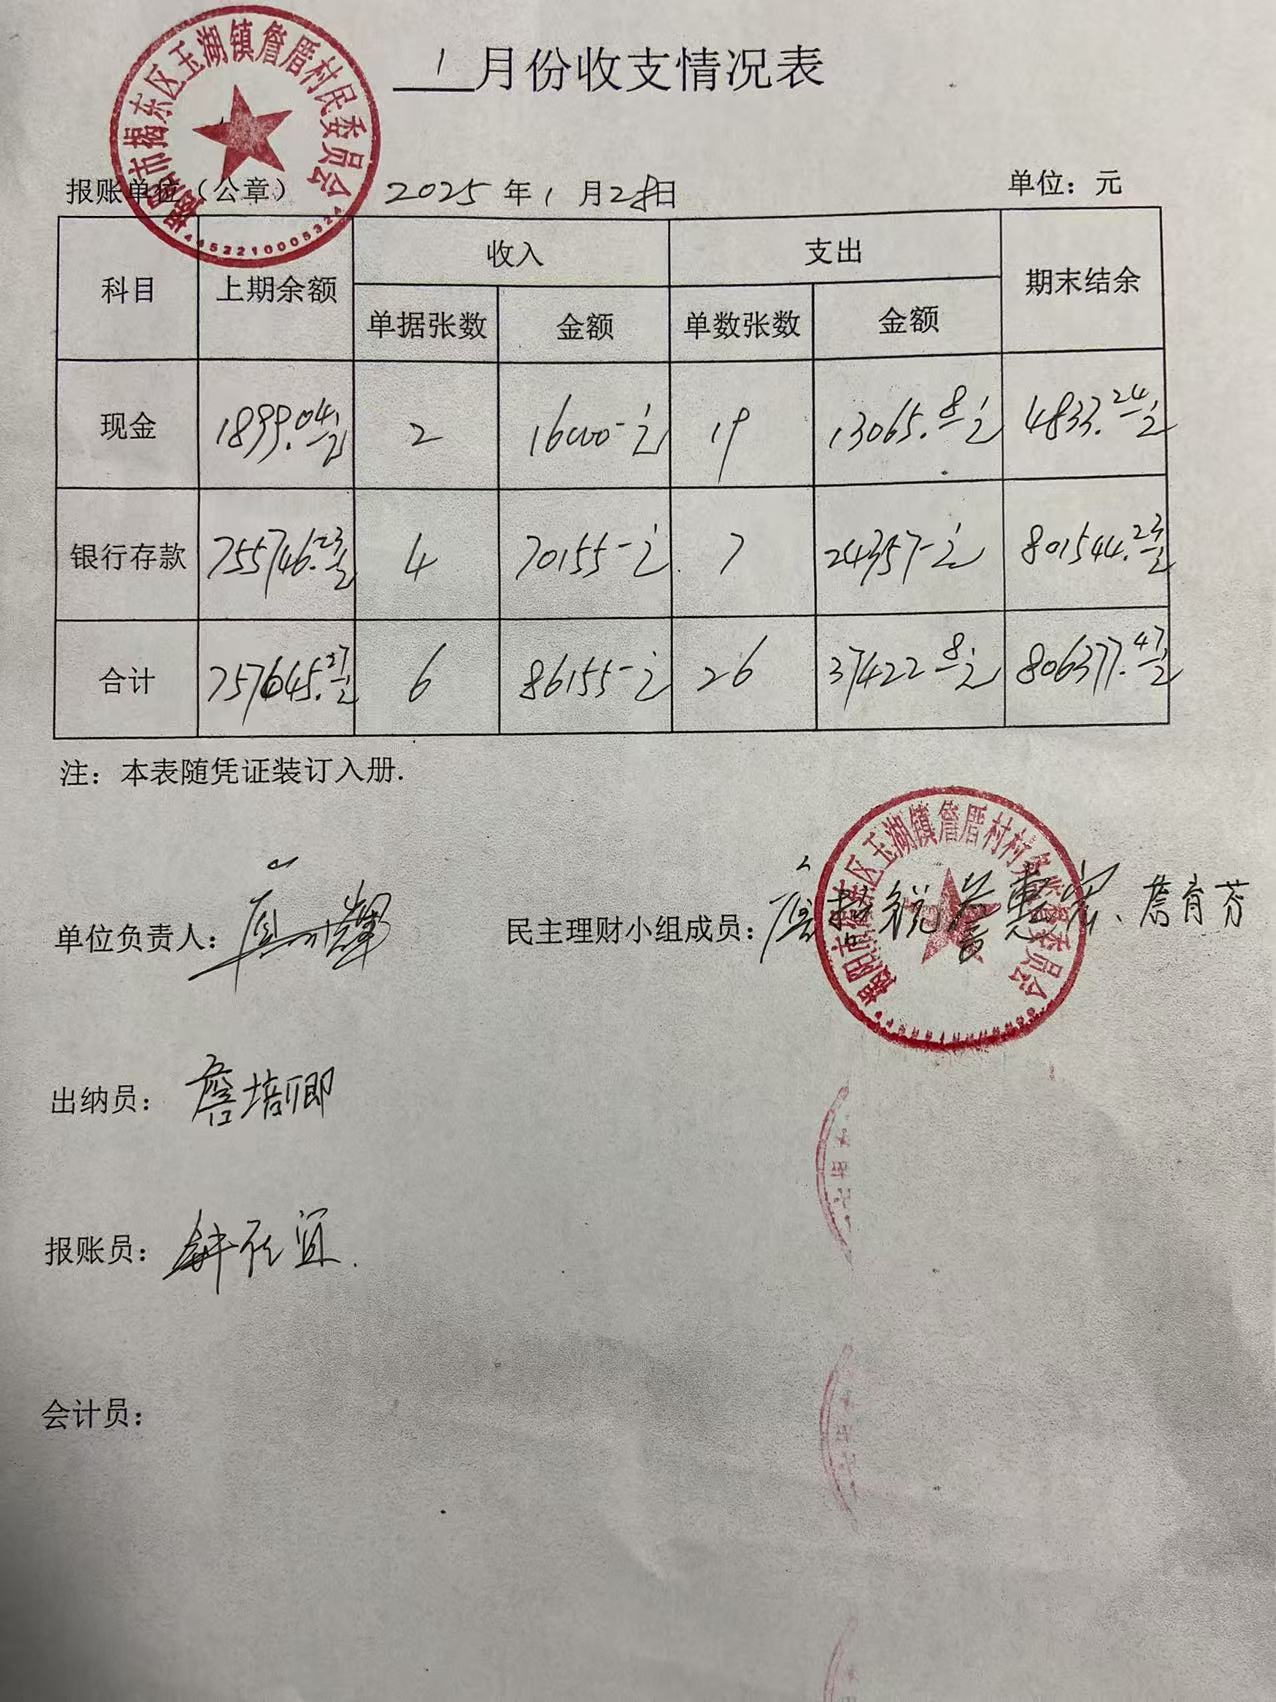 1 月份收支情况表
揭阳市揭东区玉湖镇詹厝村民委员会
4452210005324
报账单位(公章) 2025 年 1 月 28 日 单位：元
科目 上期余额 收入 支出 期末结余
单据张数 金额 单数张数 金额
现金 1899.04元 2 16000-元 19 13065.8元 4833.24元
银行存款 755746.23元 4 70155-元 7 24357-元 801544.23元
合计 757645.27元 6 86155-元 26 37422.8元 806377.47元
注：本表随凭证装订入册.
揭阳市揭东区玉湖镇詹厝村村务监督委员会
单位负责人： 民主理财小组成员： 詹育芬
出纳员： 詹培卿
报账员：
会计员：